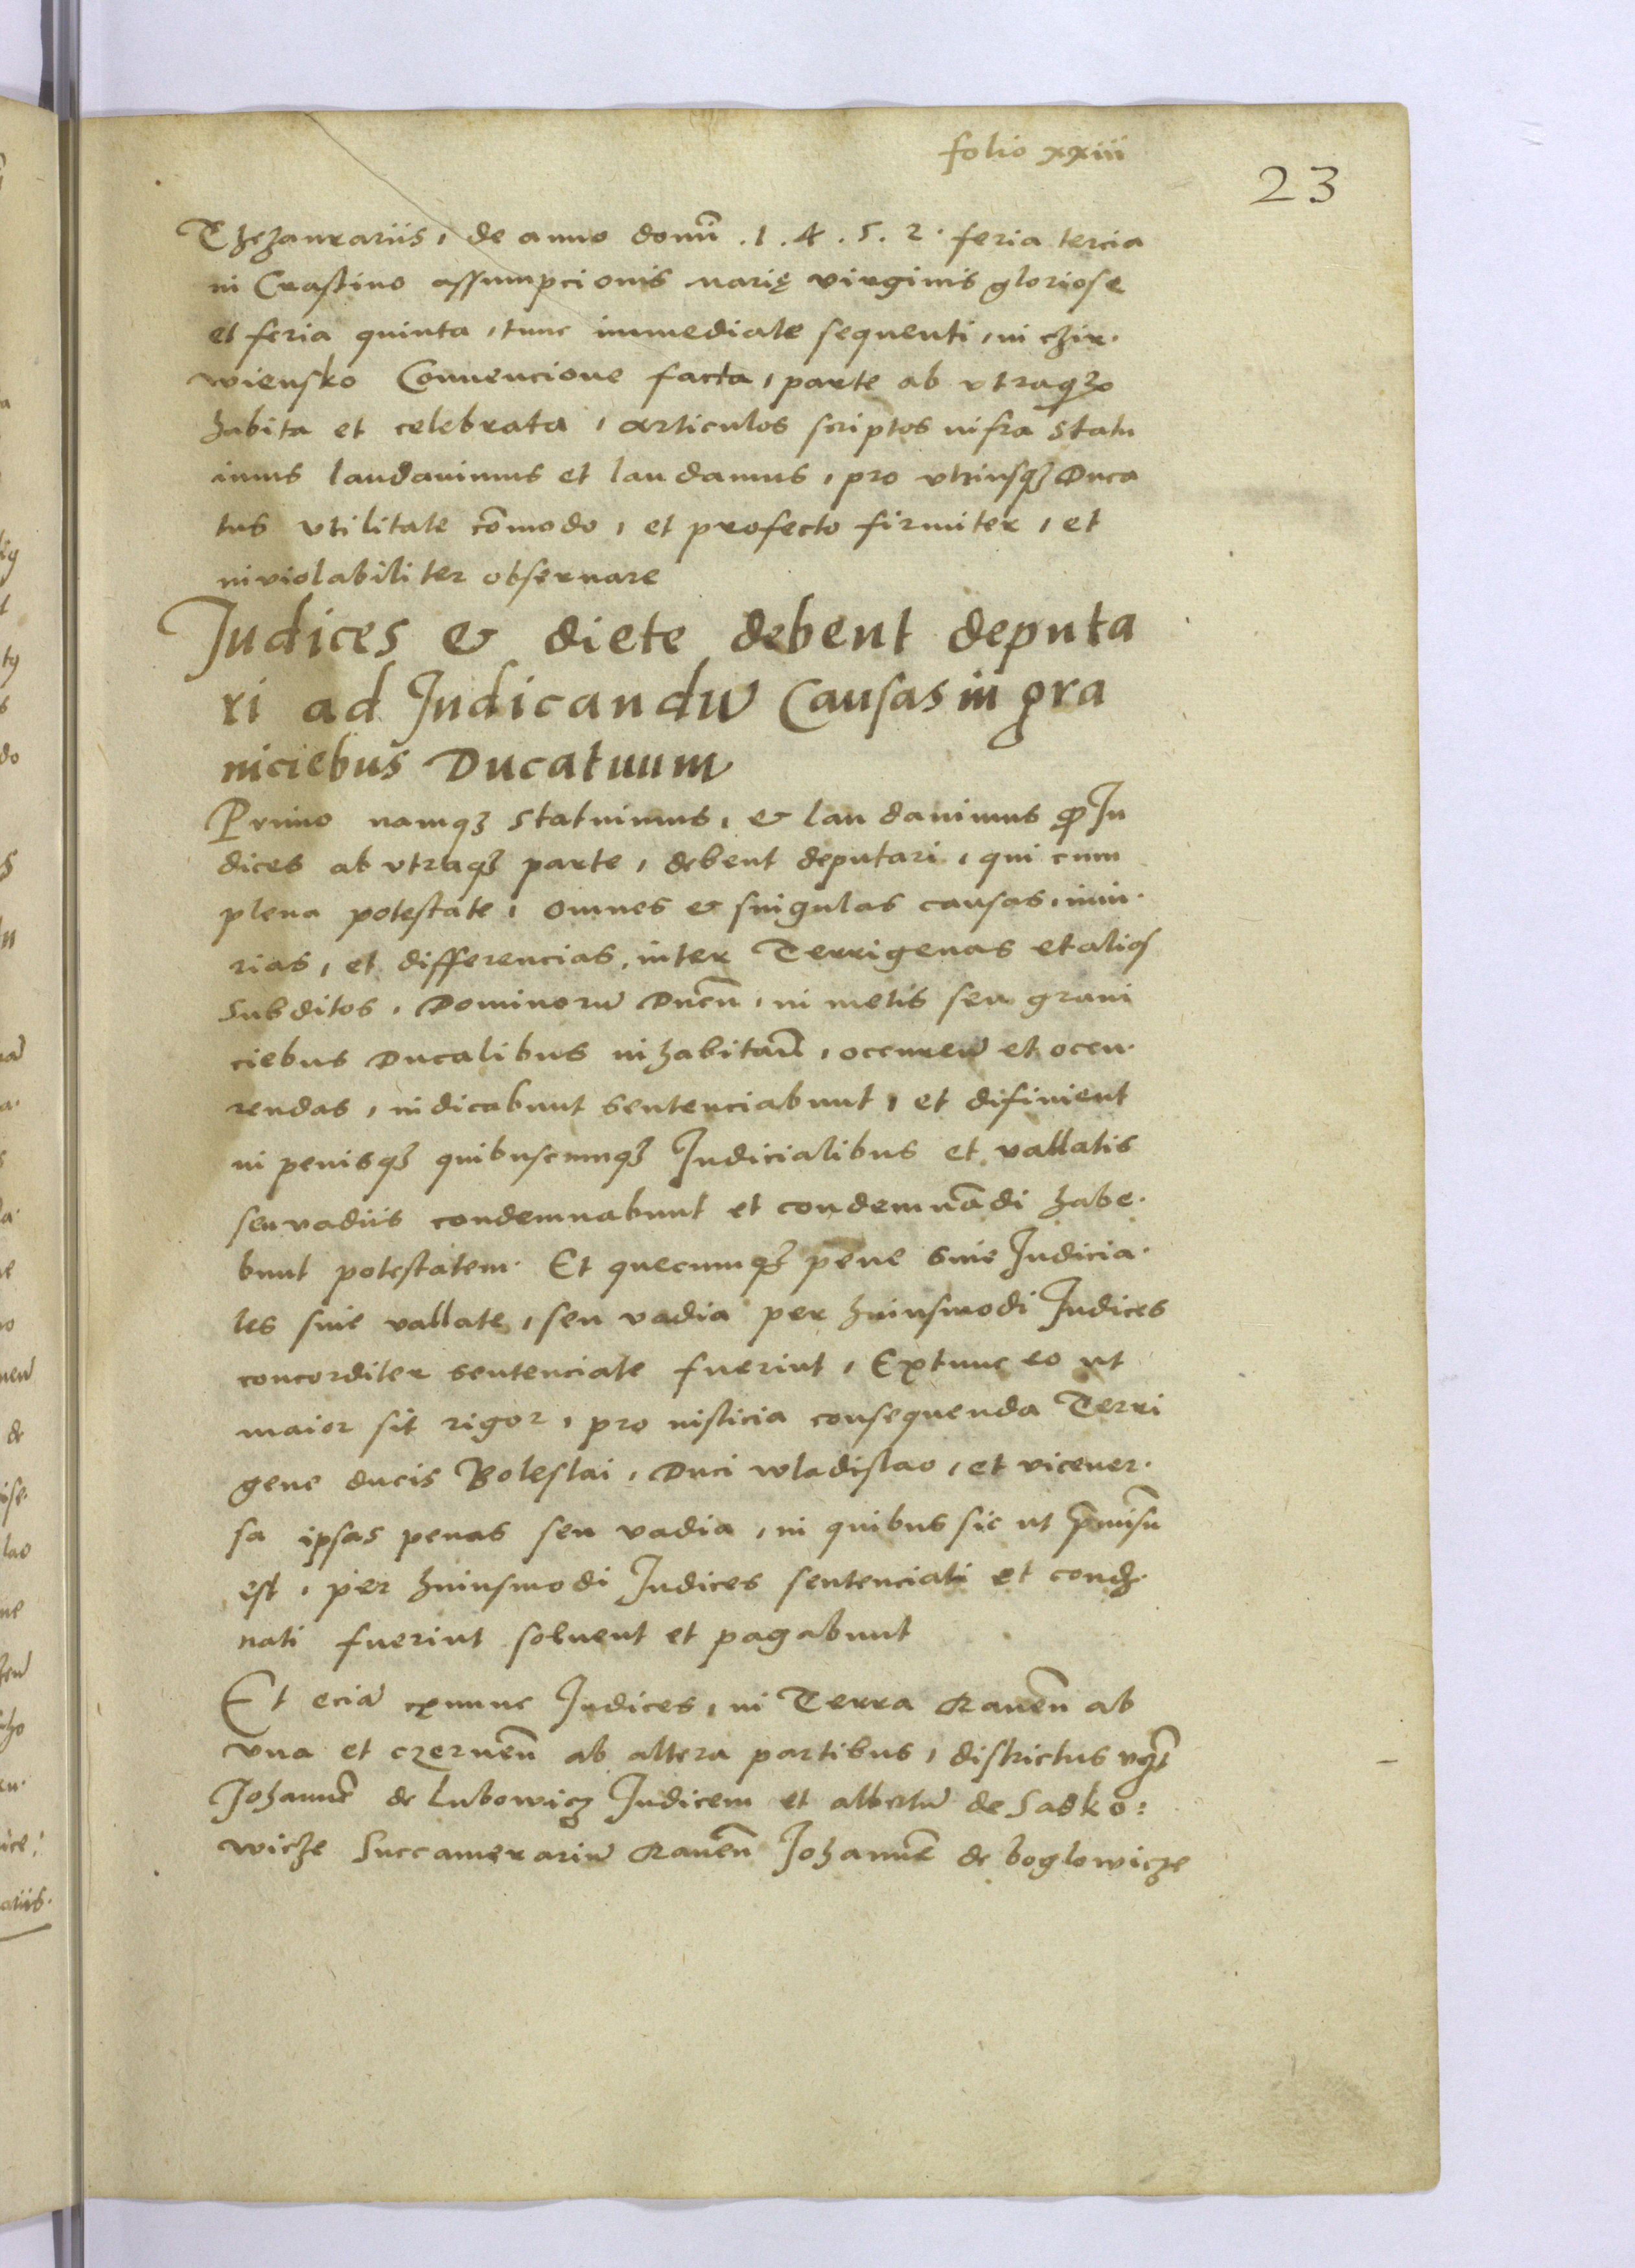 folio xxiii
23
Thezaurariis, de anno domĩ .1.4.5.2. feria tercia
in Crastino assumpcionis marię virginis gloriose
et feria quinta, tunc immediate sequenti, in czir.
wiensko Convencione facta, parte ab vtraqꝫ
habita et celebrata, articulos scriptos infra statu
imus laudauimus et laudamus, pro vtriusqꝫ Duca
tus vtilitate cōmodo, et profecto firmiter, et
inviolabiliter obseruare
Judices & diete debent deputa
ri ad Judicandū Causas in gra
niciebus Ducatuum
Primo namqꝫ statuimus, & laudauimus ꝙ Ju
dices ab vtraqꝫ parte, debent deputari, qui cum
plena potestate, omnes & singulas causas, iniu.
rias, et differencias, inter Terrigenas et alios
subditos, Dominorū Ducū, in metis seu grani
ciebus Ducalibus inhabitañ, occurreñ et occu.
rendas, iudicabunt sentenciabunt, et difinient
in penisqꝫ quibuscumqꝫ Judicialibus et vallatis
seu vadiis condemnabunt et condemnādi habe.
bunt potestatem. Et quecumqꝫ pene siue Judicia.
les siue vallate, seu vadia per huiusmodi Judices
concorditer sentenciate fuerint, Extunc eo ut
maior sit rigor, pro iusticia consequenda Terri
gene ducis Boleslai, Duci wladislao, et vicever.
sa ipsas penas seu vadia, in quibus sic ut p̄missū
est, per huiusmodi Judices sentenciati et condē.
nati fuerint soluent et pagabunt
Et eciā exnunc Judices, in Terra Raueñ ab
vna et czerneñ ab altera partibus, districtus
Johannē de Lubowicz Judicem et albertū de Sadko:
wicze Succamerariū Raueñ Johannē de boglowicze